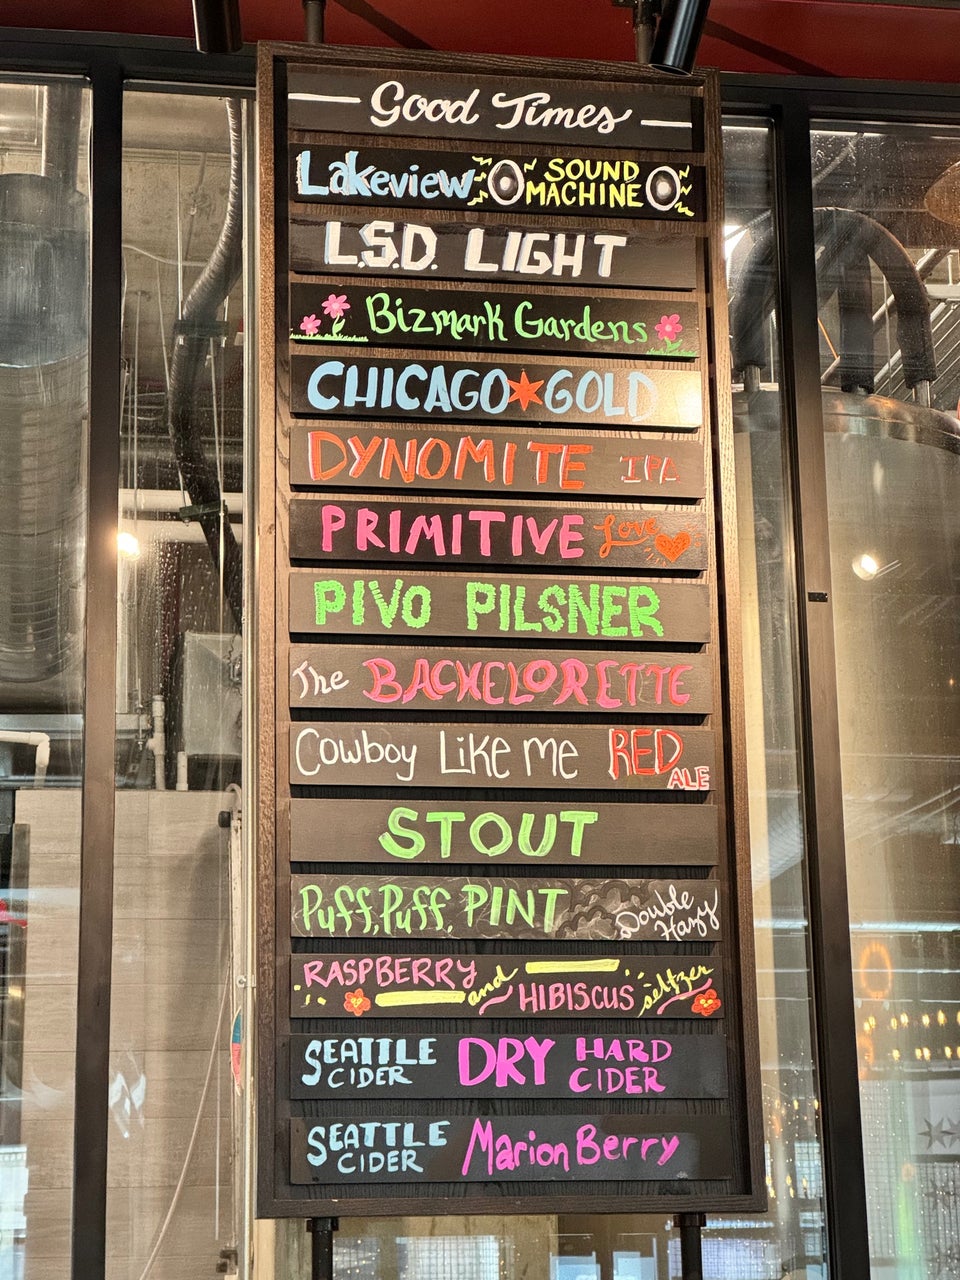 Good Times
Lakeview SOUND MACHINE
L.S.D. LIGHT
Bizmark Gardens
CHICAGO GOLD
DYNOMITE IPA
PRIMITIVE Love
PIVO PILSNER
The BACHELORETTE
Cowboy Like me RED ALE
STOUT
Puff, Puff, PINT Double Hazy
RASPBERRY and HIBISCUS seltzer
SEATTLE CIDER DRY HARD CIDER
SEATTLE CIDER Marion Berry